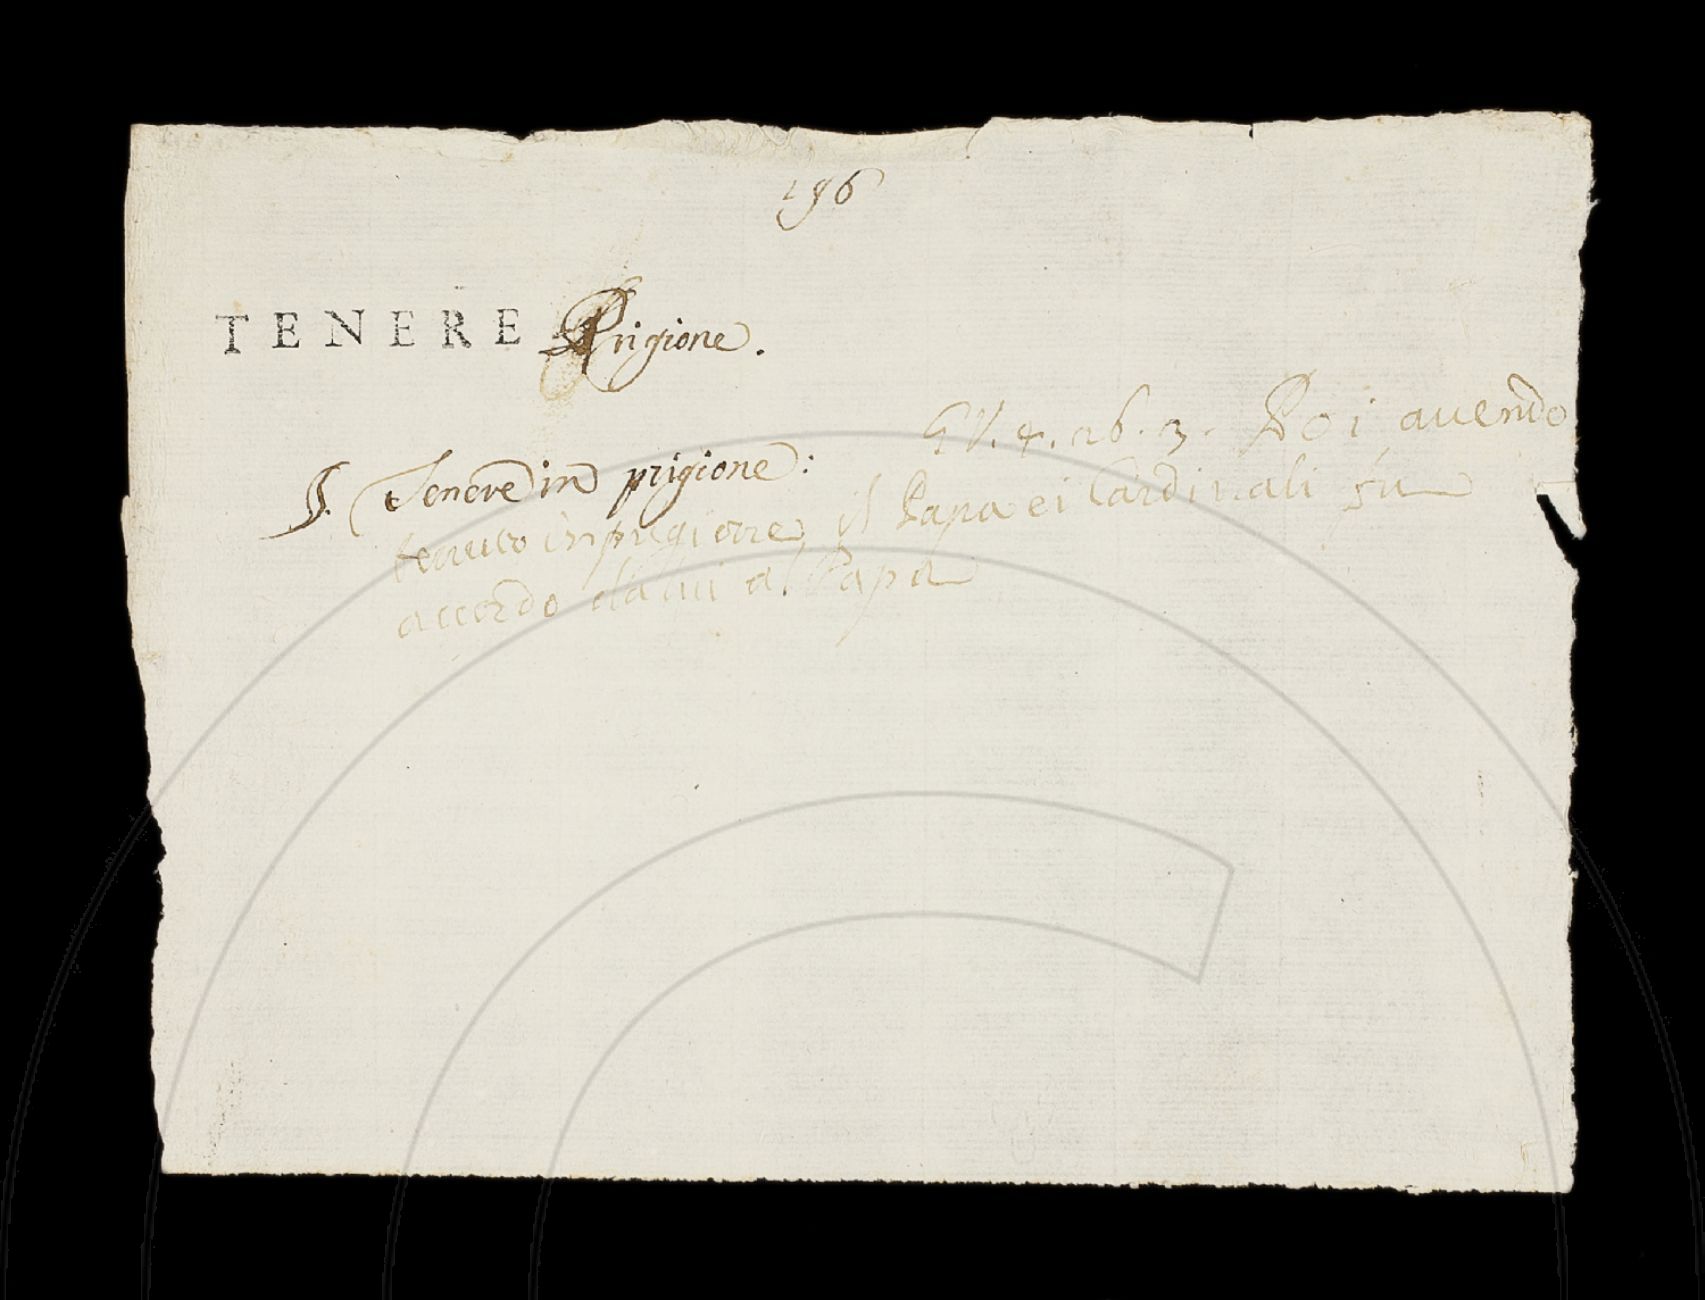 196
TENERE Prigione.
§. Tenere in prigione: GV. 4. 26. 3. Poi auendo
tenuto in prigione il Papa e i Cardinali fu
accordo da lui al Papa